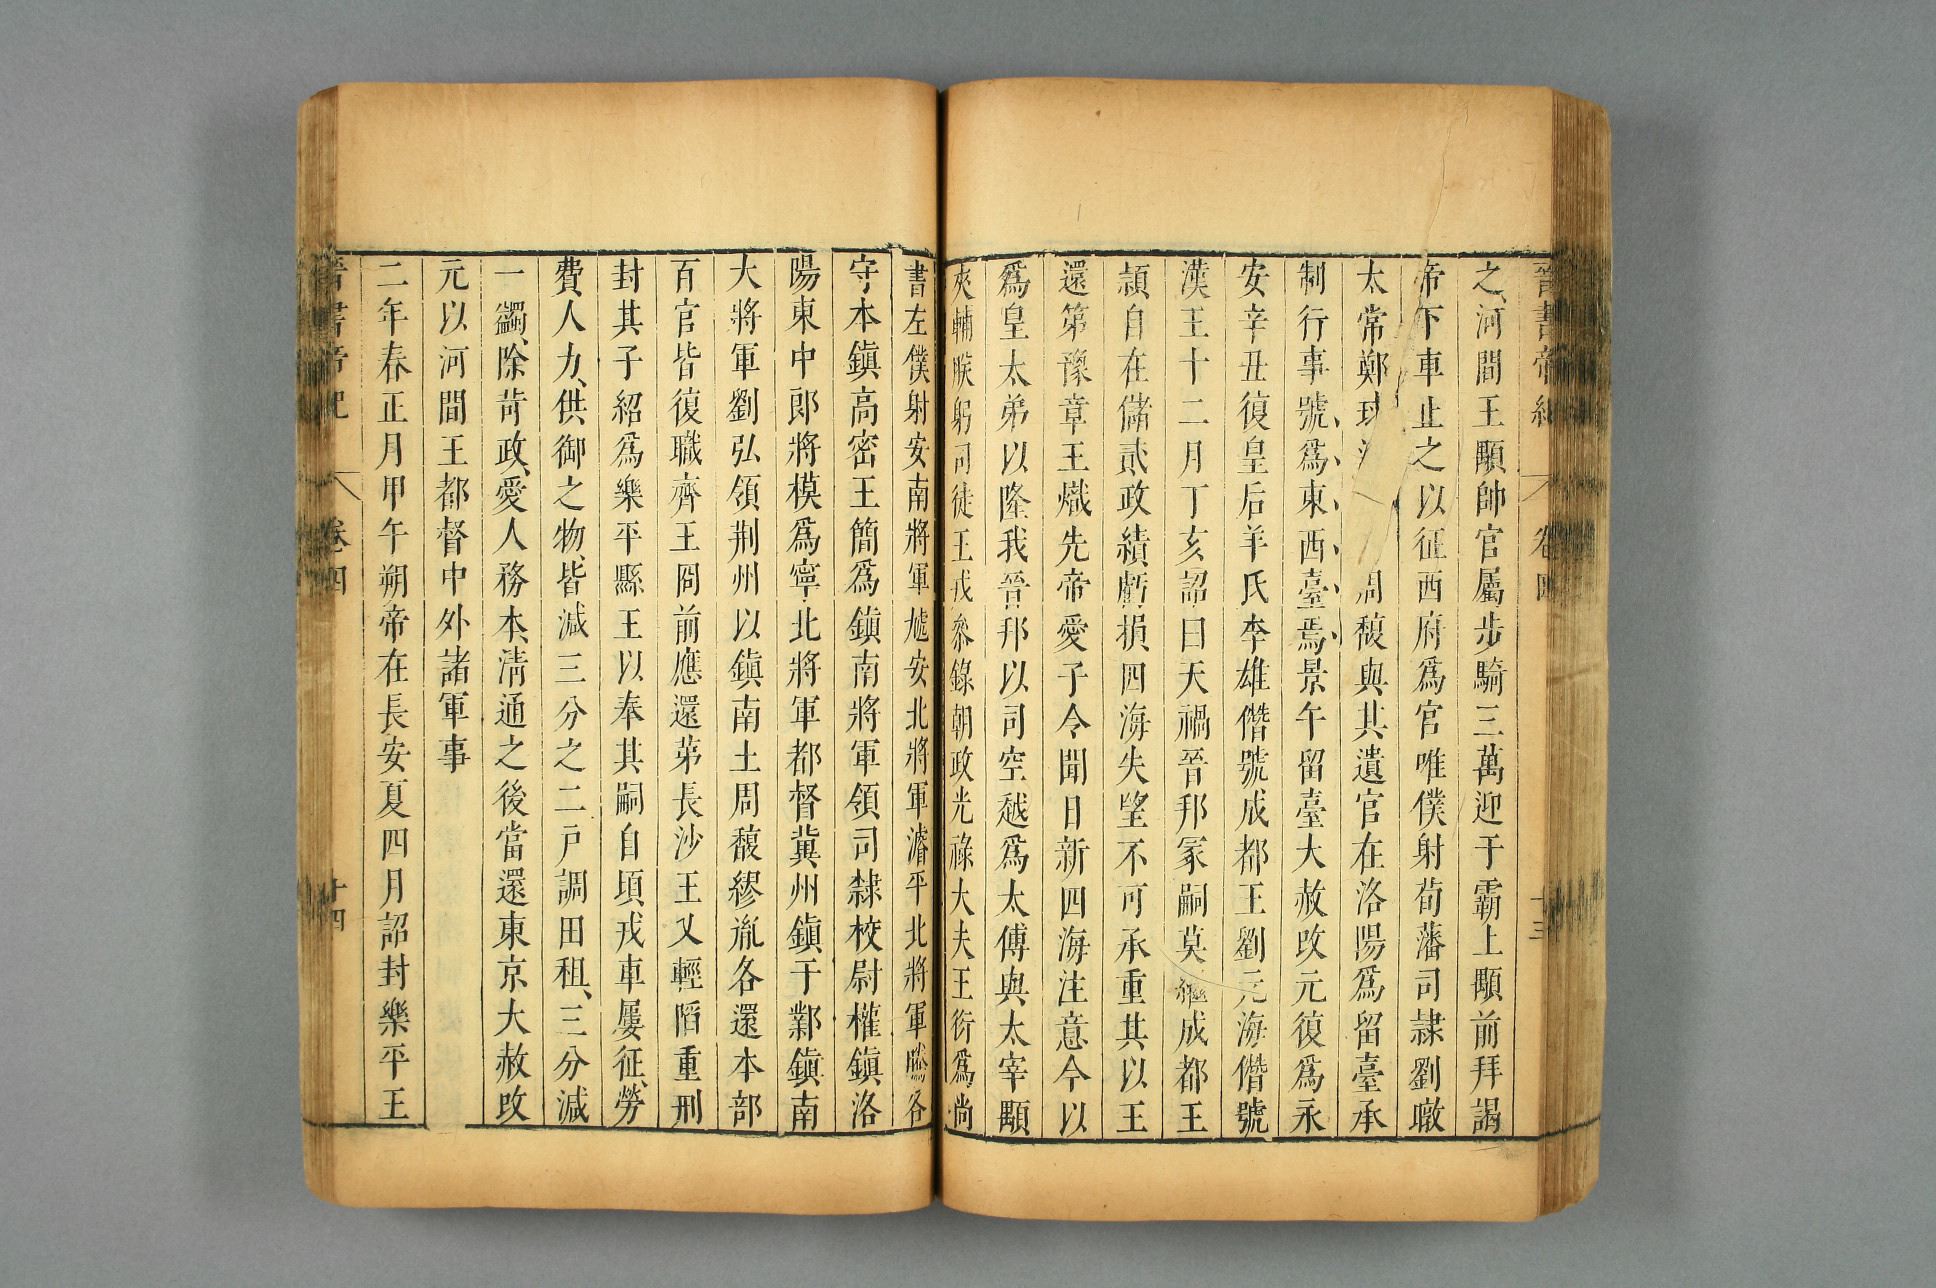 晉書帝紀 卷四 十三
之河間王顒帥官屬步騎三萬迎于霸上顒前拜謁
帝下車止之以征西府爲官唯僕射荀藩司隷劉暾
太常鄭球 周馥與其遺官在洛陽爲留臺承
制行事號爲東西臺焉景午留臺大赦改元復爲永
安辛丑復皇后羊氏李雄僭號成都王劉元海僭號
漢王十二月丁亥詔曰天禍晉邦冢嗣莫繼成都王
頴自在儲貳政績虧損四海失望不可承重其以王
還第豫章王熾先帝愛子令聞日新四海注意今以
爲皇太弟以隆我晉邦以司空越爲太傅與太宰顒
夾輔朕躬司徒王戎叅錄朝政光祿大夫王衍爲尚
書左僕射安南將軍虓安北將軍濬平北將軍騰各
守本鎮高密王簡爲鎮南將軍領司隸校尉權鎮洛
陽東中郎將模爲寧北將軍都督冀州鎮于鄴鎮南
大將軍劉弘領荆州以鎮南土周馥繆胤各還本部
百官皆復職齊王冏前應還第長沙王乂輕䧟重刑
封其子紹爲樂平縣王以奉其嗣自頃戎車屢征勞
費人力供御之物皆減三分之二戸調田租三分減
一蠲除苛政愛人務本淸通之後當還東京大赦改
元以河間王都督中外諸軍事
二年春正月甲午朔帝在長安夏四月詔封樂平王
晉書帝紀 卷四 十四